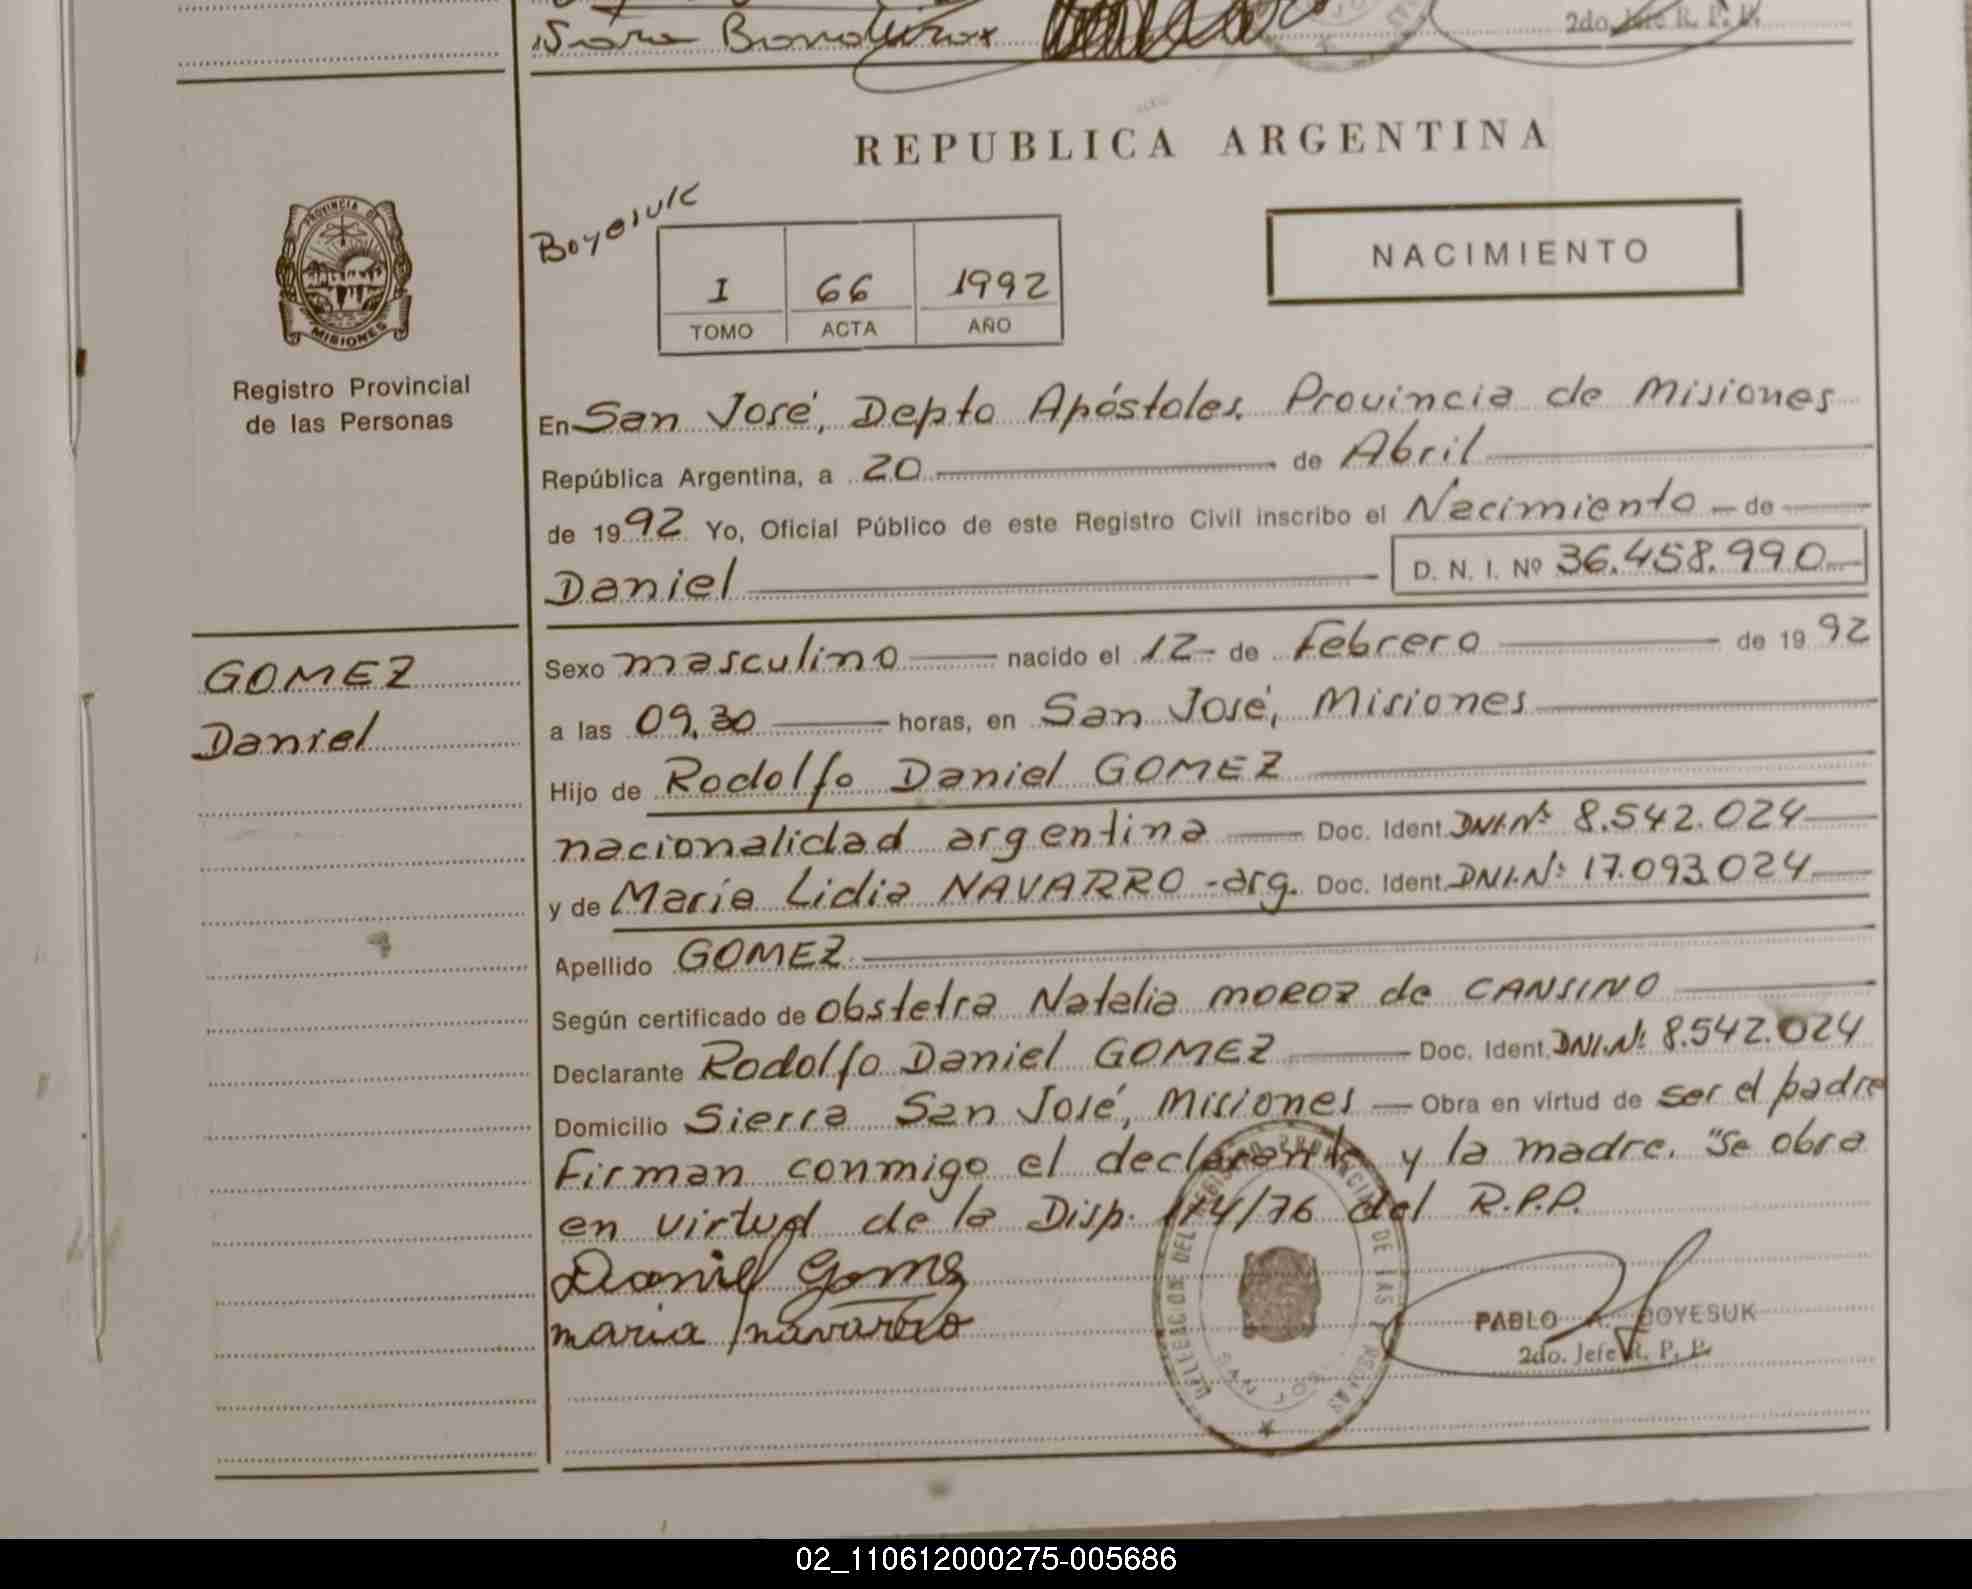 Sara
2do. Jefe R. P. P.
REPUBLICA ARGENTINA
PROVINCIA DE
MISIONES
Registro Provincial
de las Personas
Boyesuk
I 66 1992
TOMO ACTA AÑO
NACIMIENTO
En San José, Depto Apóstoles, Provincia de Misiones
República Argentina, a 20 de Abril
de 1992 Yo, Oficial Público de este Registro Civil inscribo el Nacimiento - de
Daniel D. N. I. Nº 36.458.990
GOMEZ
Daniel
Sexo masculino nacido el 12 - de Febrero de 1992
a las 09,30 horas, en San José, Misiones
Hijo de Rodolfo Daniel GOMEZ
nacionalidad argentina Doc. Ident. DNI.Nº 8.542.024
y de María Lidia NAVARRO -arg. Doc. Ident. DNI.Nº 17.093.024
Apellido GOMEZ
Según certificado de Obstetra Natalia MOROZ de CANSINO
Declarante Rodolfo Daniel GOMEZ Doc. Ident. DNI.Nº 8.542.024
Domicilio Sierra San José, Misiones — Obra en virtud de ser el padre
Firman conmigo el declarante y la madre. "Se obra
en virtud de la Disp. 174/76 del R.P.P.
Daniel Gomez
maria navarro
DELEGACION DEL REGISTRO PROVINCIAL DE LAS PERSONAS
SAN JOSE
PABLO A. BOYESUK
2do. Jefe R. P. P.
02_110612000275-005686